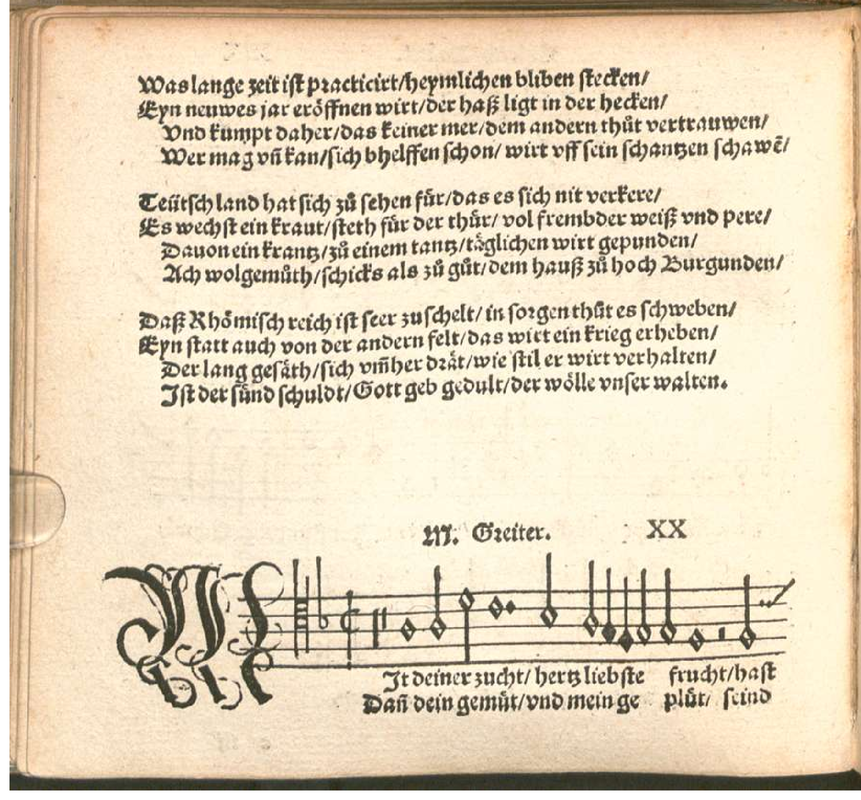 Was lange zeit ist practicirt/heymlichen bliben stecken/
Eyn neuwes jar eröffnen wirt/der haß ligt in der hecken/
Vnd kumpt daher/das keiner mer/dem andern thůt vertrauwen/
Wer mag vñ kan/sich bhelffen schon/ wirt vff sein schantzen schawẽ/
Teütsch land hat sich zů sehen für/das es sich nit verkere/
Es wechst ein kraut/steth für der thür/ vol frembder weiß vnd pere/
Dauon ein krantz/zů einem tantz/täglichen wirt gepunden/
Ach wolgemůth/schicks als zů gůt/dem hauß zů hoch Burgunden/
Daß Rhömisch reich ist seer zuschelt/ in sorgen thůt es schweben/
Eyn statt auch von der andern felt/das wirt ein krieg erheben/
Der lang gesäth/sich vm̃her drät/wie stil er wirt verhalten/
Ist der sünd schuldt/Gott geb gedult/der wölle vnser walten.
M. Greiter. XX
MIt deiner zucht/ hertz liebste frucht/hast
Dañ dein gemüt/vnd mein ge plüt/ seind